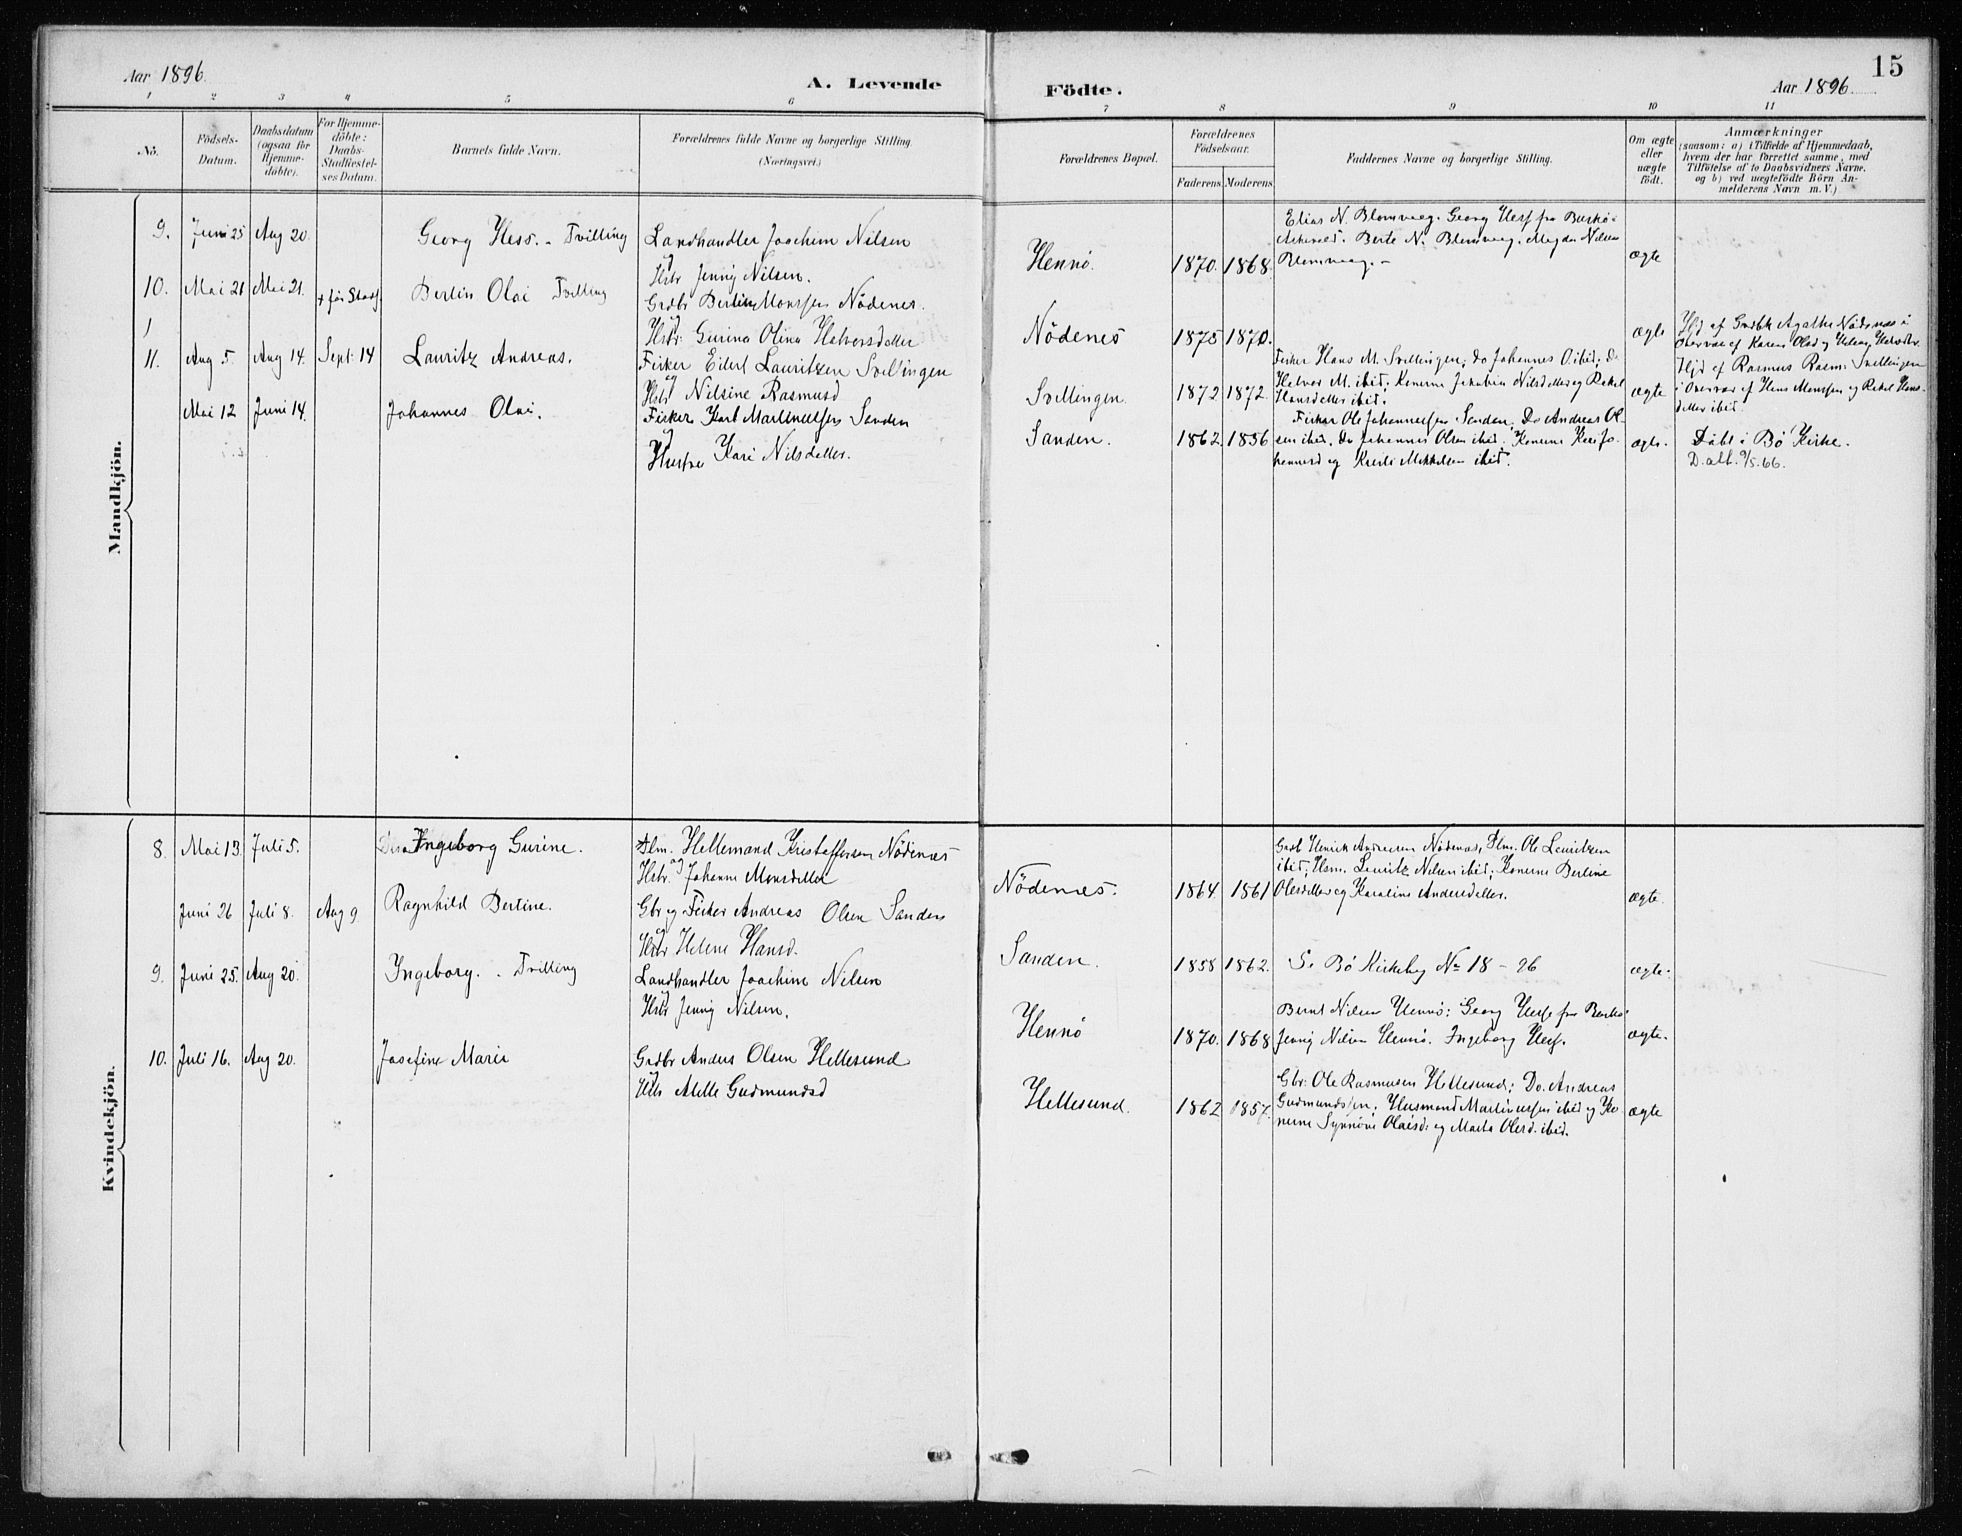 Aar 1896.
A. Levende
Födte.
15
Aar 1896
1 2 3 4 5 6 7 8 9 10 11
No.
Födsels-
Datum.
Daabsdatum
(ogsaa for
Hjemme-
döbte).
For Hjemme-
döbte:
Daabs-
Stadfæstel-
ses Datum.
Barnets fulde Navn.
Forældrenes fulde Navne og borgerlige Stilling.
(Næringsvei.)
Forældrenes Bopæl.
Forældrenes
Födselsaar.
Faderens. Moderens.
Faddernes Navne og borgerlige Stilling.
Om ægte
eller
uægte
födt.
Anmærkninger
(saasom: a) i Tilfælde af Hjemmedaab,
hvem der har forrettet samme, med
Tilföielse af to Daabsvidners Navne,
og b) ved uægtefödte Börn An-
melderens Navn m.V.)
Mandkjön.
9. Juni 25 Aug 20. Georg Hess. - Tvilling Landhandler Joachim Nilsen
Hstr Jenny Nilsen.
Hennö. 1870. 1868.
Elias N. Blomvaag. Georg Hess fra
Berte N. Blomvaag. Magda Nilsen
Blomvaag. -
ægte
10. Mai 21 Mai 21. + før Stadf. Bertin Olai Tvilling Grdbr Bertin Monssen Nödenes.
Hstr. Gurina Olina Halversdatter
Nödenes 1875 1870. ægte
Hjd af Grdbk Agathe Nödenæs i
Overvær af Karen Olsd og
11. Aug 5. Aug 14. Sept: 14 Lauritz Andreas. Fisker Eilert Lauritzen Svellingen
Hstr Nilsine Rasmusd
Svellingen. 1872 1872.
Fisker Hans M. Svellingen; do Johannes O. ibid; do
Helver M. ibid; Konerne Jakobine Nilsdatter og Rakel
Hansdatter ibid.
ægte
Hjd af Rasmus Rasm: Svellingen
i Overvær af Hans Monssen og Rakel Hans-
datter ibid.
Mai 12 Juni 14. Johannes Olai. Fisker Karl Martinussen Sanden
Hustru Kari Nilsdatter.
Sanden. 1862. 1856
Fisker Ole Johannessen Sanden, Do Andreas Ol-
sen ibid, do Johannes Olsen ibid. Konerne Kari Jo-
hannesd og Kristi Mikkelsen ibid.
ægte. Döbt i Bö Kirke.
D. att. 9/5. 66.
Kvindekjön.
8. Mai 13. Juli 5. Ingeborg Gurine. Hellemand Kristoffersen Nödenæs
Hstr. og Johanne Monsdatter
Nödenes. 1864. 1861
Grdb Henrik Andersen Nödenæs, Hsm. Ole Lauritzen
ibid; Hsm. Lauritz Nilsen ibid; Konerne Bertine
Olesdatter og Karoline Andersdatter.
ægte.
Juni 26 Juli 8. Aug 9. Ragnhild Bertine. Gbr og Fisker Andreas Olsen Sanden
Hstr Helene Hansd.
Sanden. 1858 1862. S. Bö Kirkebog No 18 - 96 ægte.
9. Juni 25. Aug 20. Ingeborg. - Tvilling Landhandler Joachim Nilsen
Hstr Jenny Nilsen.
Hennö 1870. 1868
Bernt Nilsen Hennö; Georg Hess fra
Jenny Nilsen Hennö. Ingeborg Hess.
ægte.
10. Juli 16. Aug 20. Josefine Marie Grdbr Anders Olsen Hellesund
Atelle Gudmundsd
Hellesund. 1862 1857.
Gbr. Ole Rasmusen Hellesund; Do. Andreas
Gudmundssen; Husmand ibid og Ko-
nerne Synnöve Olaisd. og Marta Olsd. ibid.
ægte